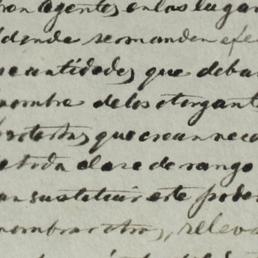 con agentes en los lugar
donde se manden efe
cantidades que deba
nombre de los otorgant
protestas, que crean neca
toda clase de rango
an sustituir este poder
nombrar otros, releva